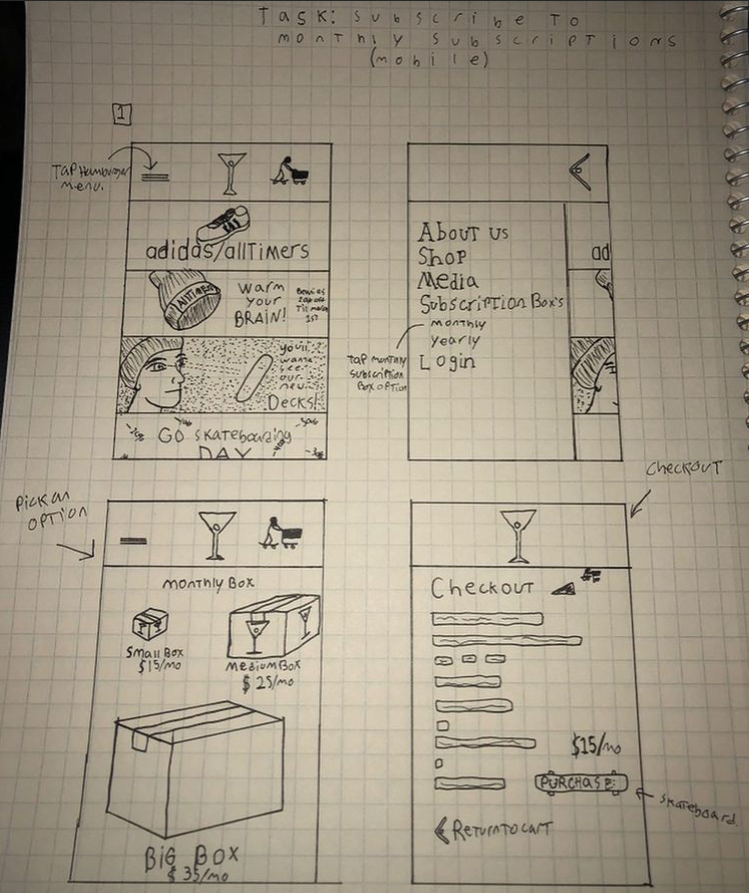 Task: subscribe To
monthly subscriptions
(mobile)
1
Tap Hamburger
menu.
adidas/allTimers
AllTimers
Warm
your
BRAIN!
Beanies
20% off
Till march
1st
you'll
wanna
see
our
new
Decks!
GO skateboarding
DAY
About us
Shop
Media
Subscription Box's
monthly
yearly
Login
ad
Tap monthly
subscription
Box option
Pick an
option
Monthly Box
Small Box
$15/mo
Medium Box
$25/mo
BIG BOX
$35/mo
Checkout
Checkout
$15/mo
PURCHASE
skateboard.
Return to cart